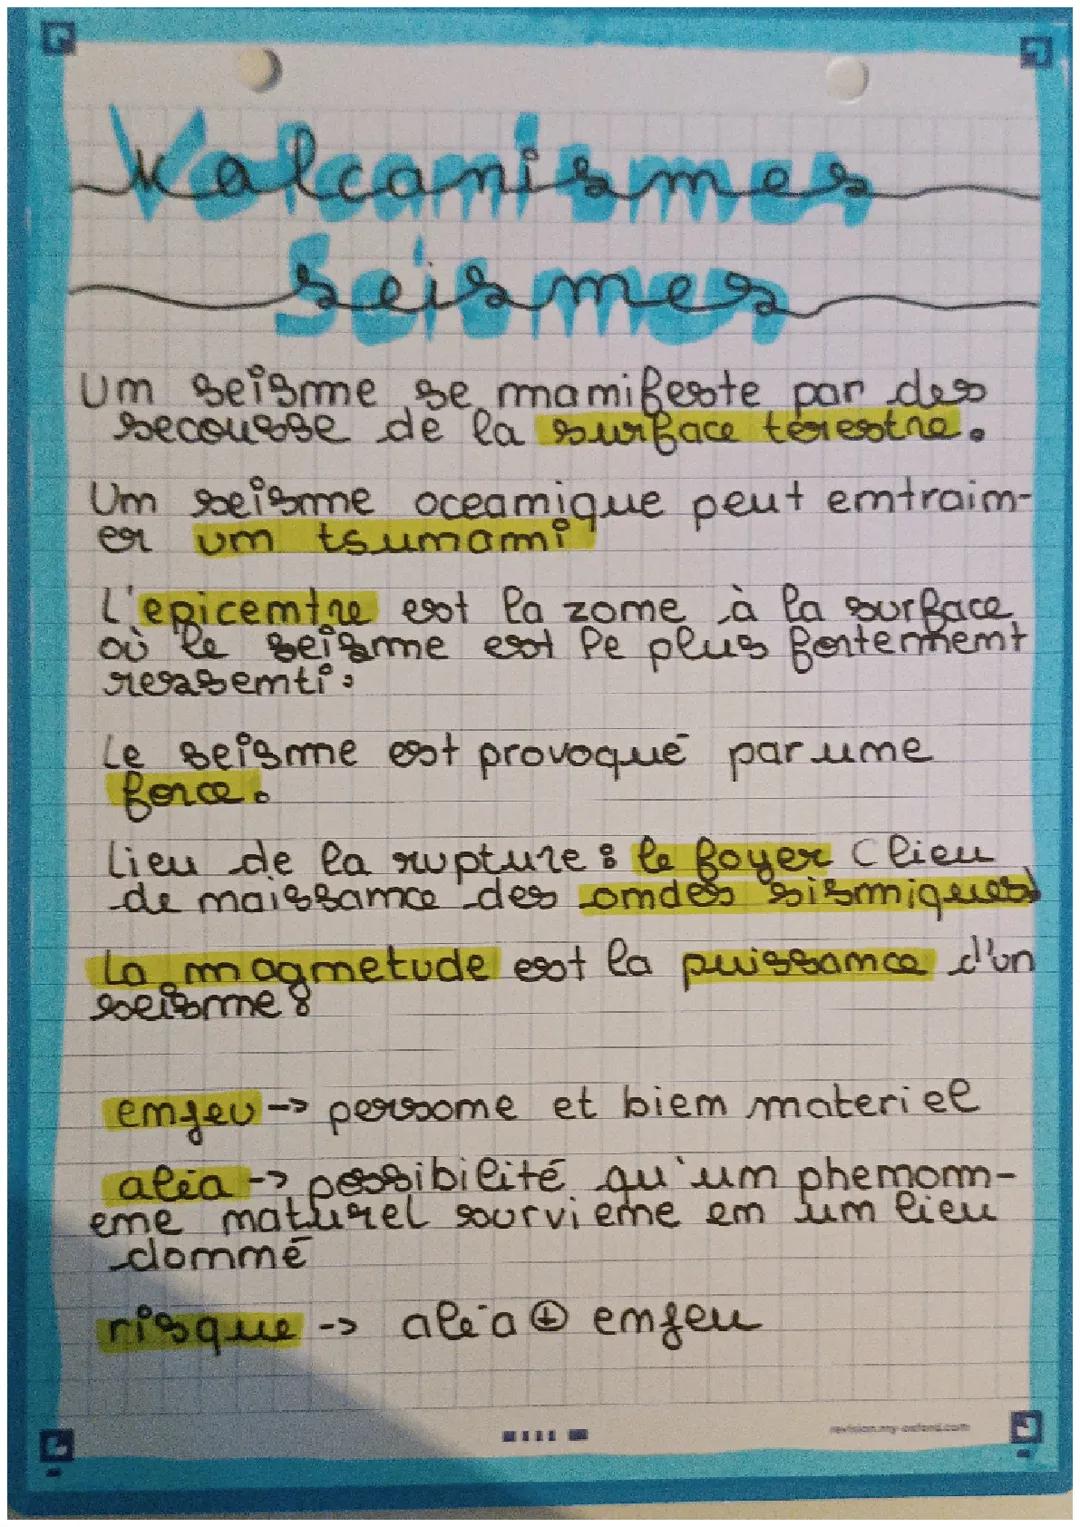 Volcanismes
Seismes
Un seisme se manifeste par des
secousse de la surface terestre.
Un seisme oceanique peut entrain-
er un tsunami
L'epicentre est la zone à la surface
où le seisme est le plus fortement
ressenti.
Le seisme est provoqué par une
force.
Lieu de la rupture : le foyer (lieu
de naissance des ondes sismiques)
La magnetude est la puissance d'un
seisme :
enjeu -> personne et bien materiel
aléa -> possibilité qu'un phenomn-
ene naturel survienne en un lieu
donné
risque -> aléa ⊕ enjeu
revision.my-oxford.com